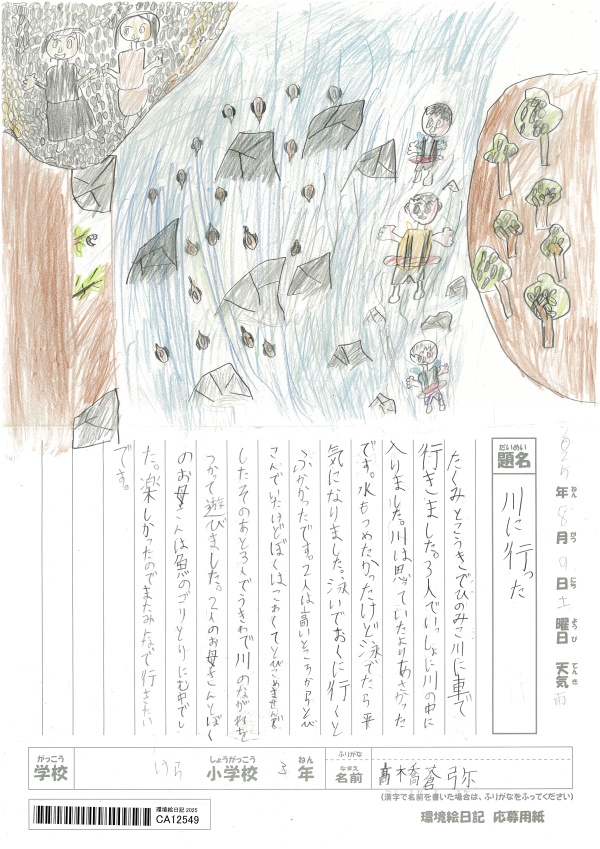 2025年8月9日土曜日 天気雨
ねん がつ にち ようび てんき
だいめい
題名
川に行った
たくみとこうきでひのみこ川に車で
行きました。3人でいっしょに川の中に
入りました。川は思っていたよりあさかった
です。水もつめたかったけど泳でたら平
気になりました。泳いでおくに行くと
ふかかったです。2人は高いところからとび
こんでいたけどぼくはこわくてとびこめませんで
したそのあと3人でうきわで川のながれを
つかって遊びました。2人のお母さんとぼく
のお母さんは魚のゴリとりにむ中でし
た。楽しかったのでまたみんなで行きたい
です。
がっこう しょうがっこう ねん
学校 小学校 3年
ふりがな
なまえ
名前 髙橋蒼弥
(漢字で名前を書いた場合は、ふりがなをふってください)
環境絵日記 2025
CA12549
環境絵日記 応募用紙